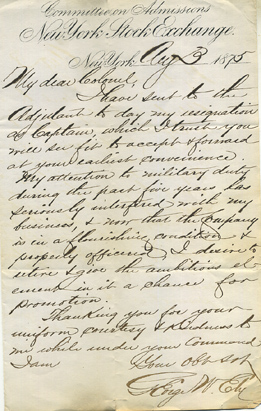 Committee on Admissions
New York Stock Exchange.
New York Aug 3 1875
My dear Colonel,
I have sent to the
Adjutant to day my resignation
as Captain, which I trust you
will see fit to accept & forward
at your earliest convenience.
My attention to military duty
during the past five years has
seriously interfered with my
business, & now that the company
is in a flourishing condition &
properly officered, I desire to
retire & give the ambitious el-
ement in it a chance for
promotion.
Thanking you for your
uniform courtesy & kindness to
me while under your command
I am Your Obt Svt
George W. Ely